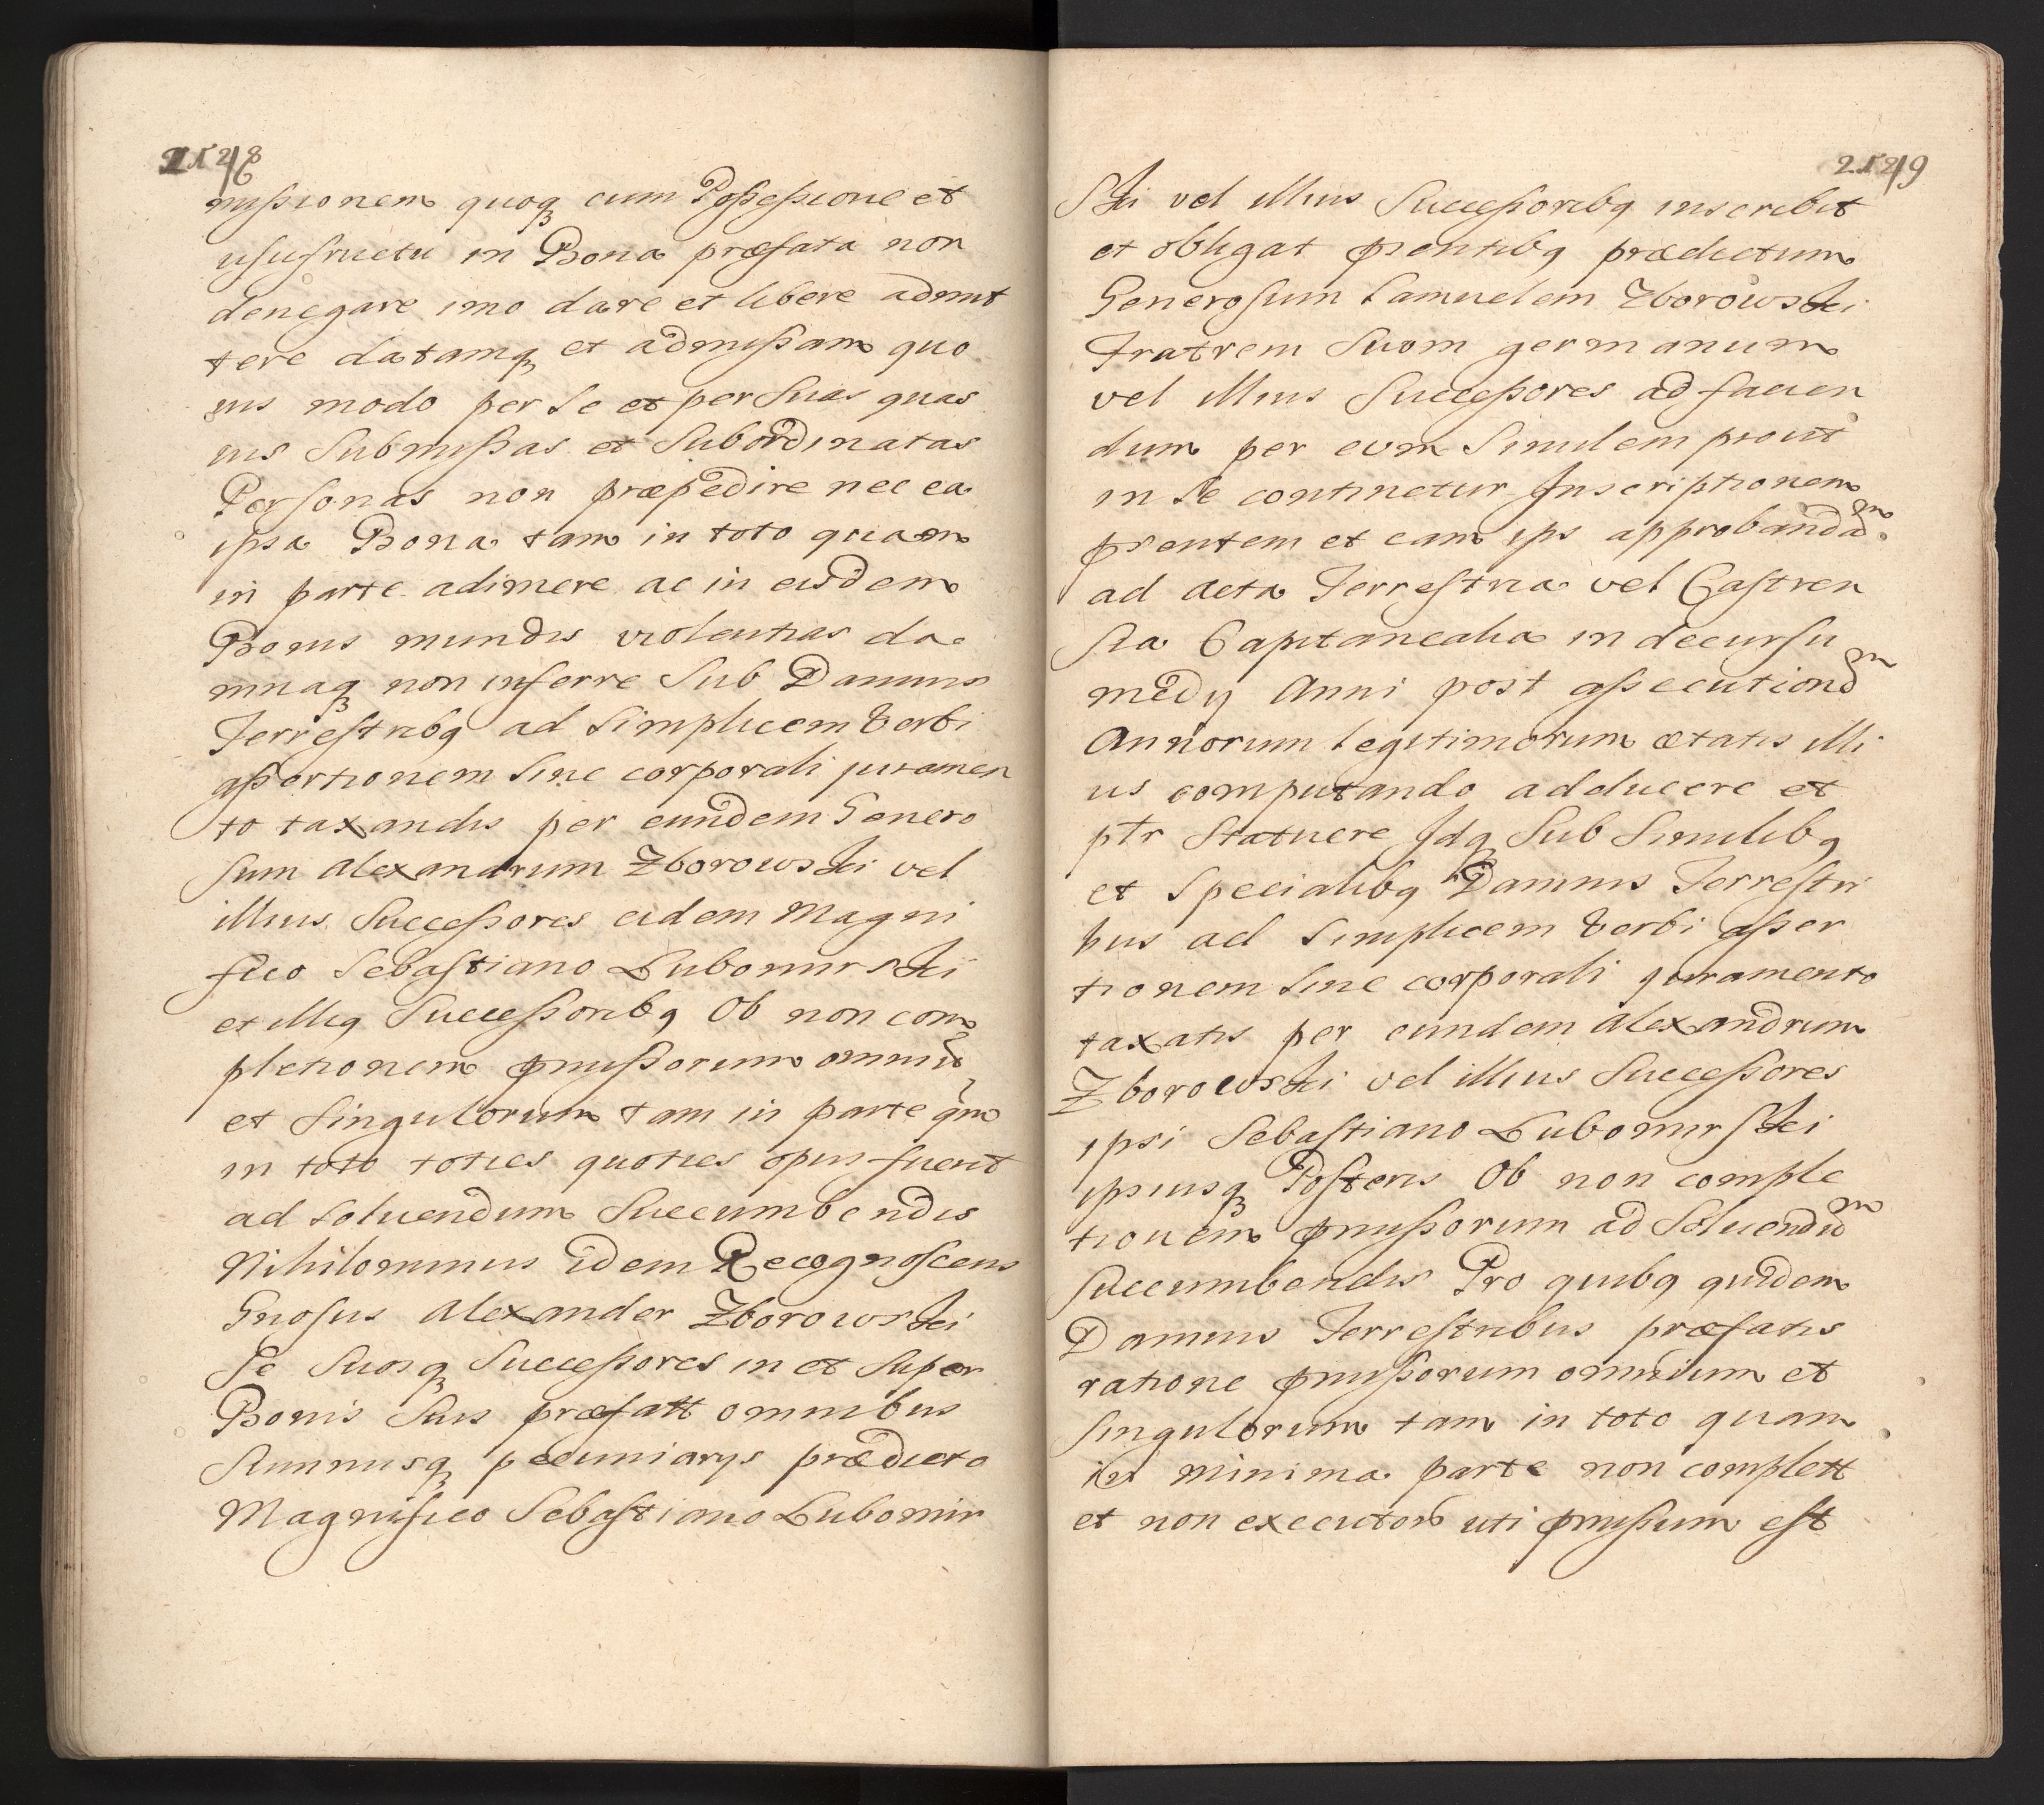 missionem quoq cum Possessione et
usufructu in Bona præfata non
denegare imo dare et libere admit
tere datamq et admissam quo
vis modo per Se et per Suas quas
vis Submissas et Subordinatas
Personas non præpedire nec ea
ipsa Bona tam in toto quam
in parte adimere ac in eisdem
Bonis mundis violentias da
mnaq non inferre Sub Damnis
Terrestribq ad Simplicem Verbi
assertionem Sine corporali juramen
to taxandis per eundem Genero
sum Alexandrum Zborowski vel
illius Successores eidem Magni
fico Sebastiano Lubomirski
et illiq Successoribq Ob non com
pletionem pmissorum omniu
et Singulorum tam in parte qm
in toto toties quoties opus fuerit
ad Solvendum Succumbendis
Nihilominus idem Recognoscens
Gnosus Alexander Zborowski
Se Suosq Successores in et Super
Bonis Suis præfatt omnibus
Summisq pecuniarys prædicto
Magnifico Sebastiano Lubomir
2129
Ski vel illius Successoribq inscribit
et obligat psentibq prædictum
Generosum Samuelem Zborowski
Fratrem Suom germanum
vel illius Successores ad facien
dum per eum Similem prout
in Se continetur Inscriptionem
psentem et eam ips approbandam
ad Acta Terrestria vel Castren
sia Capitanealia in decursu
medy Anni post assecutionem
Annorum legitimorum ætatis illi
us computando adducere et
ptr Statuere Idq Sub Similibq
et Specialibq Damnis Terrestri
bus ad Simplicem Verbi asser
tionem Sine corporali juramento
taxatis per eundem Alexandrum
Zborowski vel illius Successores
ipsi Sebastiano Lubomirski
ipsiusq Posteris Ob non comple
tionem pmissorum ad Solvendum
Succumbendis Pro quibq quidem
Damnis Terrestribus præfatis
ratione pmissorum omnium et
Singulorum tam in toto quam
in minima parte non complett
et non executor uti pmissum est